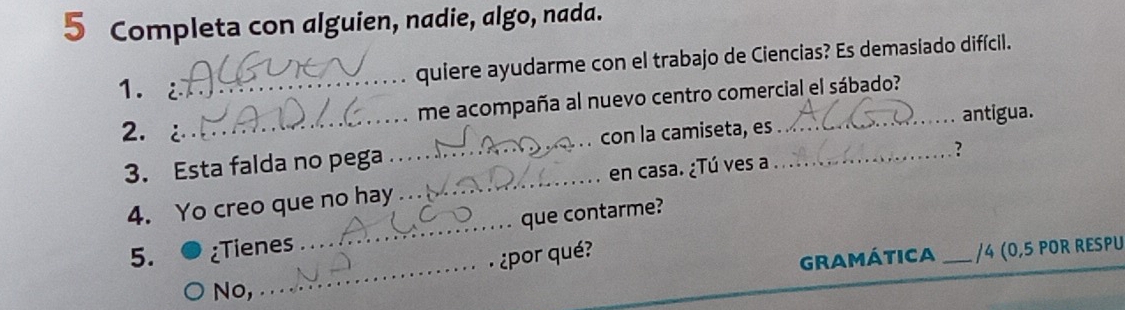 5 Completa con alguien, nadie, algo, nada.
1. ¿ ALGUIEN quiere ayudarme con el trabajo de Ciencias? Es demasiado difícil.
2. ¿ NADIE me acompaña al nuevo centro comercial el sábado?
3. Esta falda no pega NADA con la camiseta, es ALGO antigua.
4. Yo creo que no hay NADIE en casa. ¿Tú ves a ........ ?
5. ¿Tienes ALGO que contarme?
No, NA ........ . ¿por qué?
GRAMÁTICA ___ /4 (0,5 POR RESPU